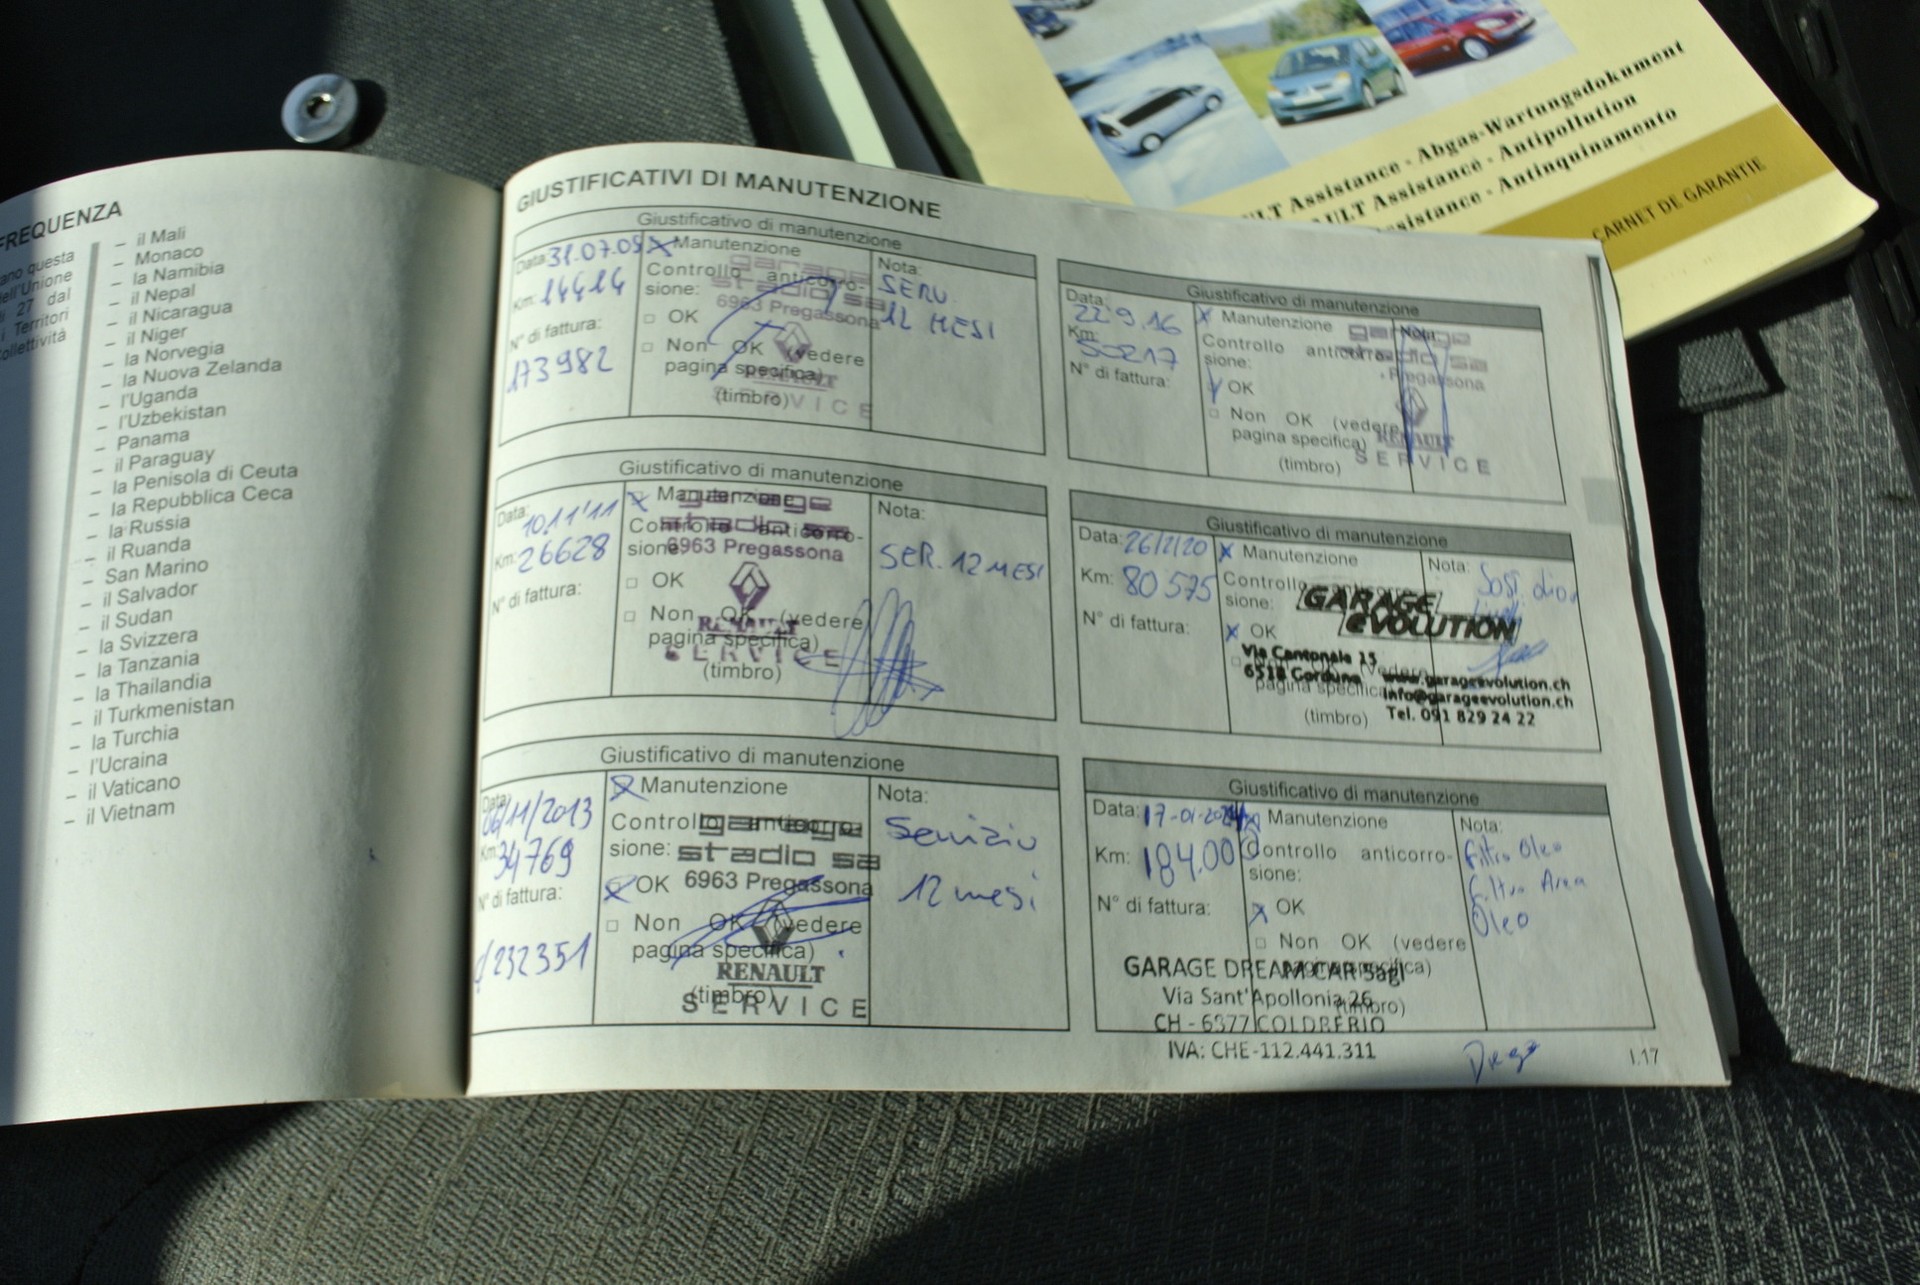 FREQUENZA
ano questa
dell'Unione
i 27 dal
i Territori
ollettività
– il Mali
– Monaco
– la Namibia
– il Nepal
– il Nicaragua
– il Niger
– la Norvegia
– la Nuova Zelanda
– l'Uganda
– l'Uzbekistan
– Panama
– il Paraguay
– la Penisola di Ceuta
– la Repubblica Ceca
– la Russia
– il Ruanda
– San Marino
– il Salvador
– il Sudan
– la Svizzera
– la Tanzania
– la Thailandia
– il Turkmenistan
– la Turchia
– l'Ucraina
– il Vaticano
– il Vietnam
GIUSTIFICATIVI DI MANUTENZIONE
Giustificativo di manutenzione
Data: 31.07.09
Km: 14414
N° di fattura:
173982
Manutenzione
Controllo anticorro-
sione:
OK
Non OK (vedere
pagina specifica)
(timbro)
garage
stadio sa
6963 Pregassona
RENAULT
SERVICE
Nota:
SERV.
12 MESI
Giustificativo di manutenzione
Data:
10.11'11
Km: 26628
N° di fattura:
Manutenzione
Controllo anticorro-
sione:
OK
Non OK (vedere
pagina specifica)
(timbro)
garage
stadio sa
6963 Pregassona
RENAULT
SERVICE
Nota:
SER. 12 MESI
Giustificativo di manutenzione
Data:
06/11/2013
Km: 34769
N° di fattura:
232351
Manutenzione
Controllo anticorro-
sione:
OK
Non OK (vedere
pagina specifica)
(timbro)
garage
stadio sa
6963 Pregassona
RENAULT
SERVICE
Nota:
Servizio
12 mesi
Giustificativo di manutenzione
Data:
22.9.16
Km:
50217
N° di fattura:
Manutenzione
Controllo anticorro-
sione:
OK
Non OK (vedere
pagina specifica)
(timbro)
garage
stadio sa
Pregassona
RENAULT
SERVICE
Nota:
Giustificativo di manutenzione
Data: 26/2/20
Km: 80575
N° di fattura:
Manutenzione
Controllo anticorro-
sione:
OK
(vedere
pagina specifica)
(timbro)
GARAGE
EVOLUTION
Via Cantonale 15
6518 Gorduno www.garageevolution.ch
info@garageevolution.ch
Tel. 091 829 24 22
Nota:
Giustificativo di manutenzione
Data: 17-01-2024
Km: 184.000
N° di fattura:
Manutenzione
Controllo anticorro-
sione:
OK
Non OK (vedere
pagina specifica)
(timbro)
GARAGE DREAM CAR Sagl
Via Sant'Apollonia 26
CH - 6877 COLDRERIO
IVA: CHE-112.441.311
Nota:
Filtro Oleo
Filtro Area
Oleo
Diego
I.17
ULT Assistance - Abgas-Wartungsdokument
ULT Assistance - Antipollution
ssistance - Antinquinamento
CARNET DE GARANTIE